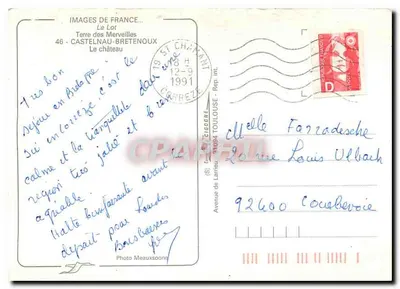 IMAGES DE FRANCE...
Le Lot
Terre des Merveilles
46 - CASTELNAU-BRETENOUX
Le château
Très bon
séjour en
Ici en Corrèze, c'est le
calme et la tranquillité dans une
région très jolie et
agréable.
Halte bienfaisante avant le
départ pour Lourdes
Photo Maaussaons
19 ST CHAMANT
18 H
12-9
1991
CORREZE
D
Avenue de 31084 TOULOUSE - Rep. int.
Melle Farradesche
rue Louis Ulbach
92400 Courbevoie